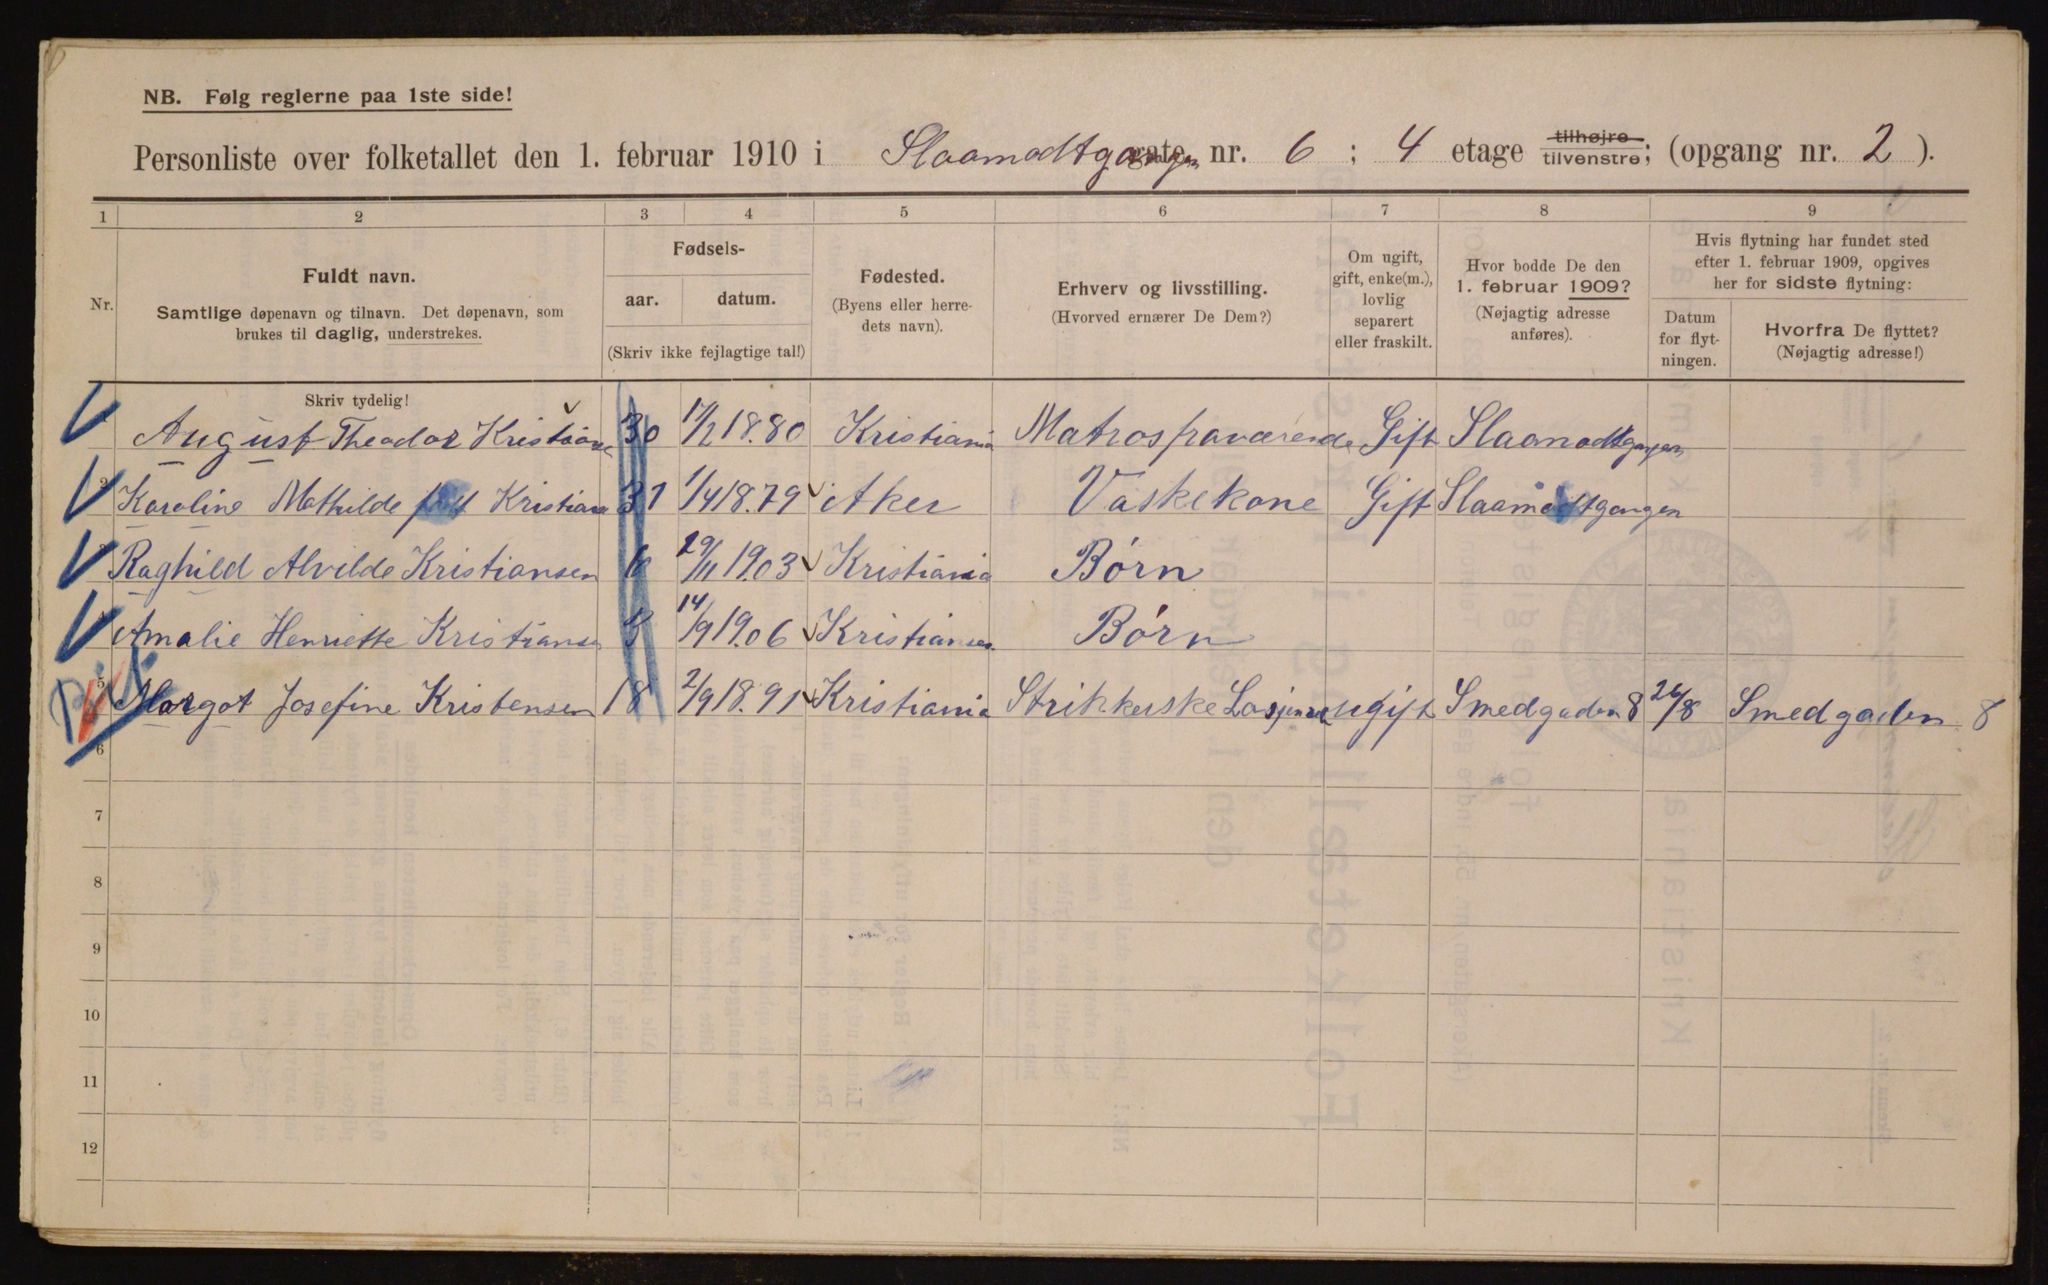 NB. Følg reglerne paa 1ste side!
Personliste over folketallet den 1. februar 1910 i Slaamodtgangen gate nr. 6 ; 4 etage tilhøjre tilvenstre; (opgang nr. 2 ).
1 2 3 4 5 6 7 8 9
Nr.
Fuldt navn.
Samtlige døpenavn og tilnavn. Det døpenavn, som
brukes til daglig, understrekes.
Fødsels-
aar. datum.
(Skriv ikke fejlagtige tal!)
Fødested.
(Byens eller herre-
dets navn).
Erhverv og livsstilling.
(Hvorved ernærer De Dem?)
Om ugift,
gift, enke(m.),
lovlig
separert
eller fraskilt.
Hvor bodde De den
1. februar 1909?
(Nøjagtig adresse
anføres).
Hvis flytning har fundet sted
efter 1. februar 1909, opgives
her for sidste flytning:
Datum
for flyt-
ningen.
Hvorfra De flyttet?
(Nøjagtig adresse!)
Skriv tydelig!
August Theodor Kristianse 30 17/2 18.80 Kristiania Matros fraværende Gift Slaamodtgangen
2 Karoline Mathilde Kristianse 31 1/4 18.79 Aker Vaskekone Gift Slaamodtgangen
3 Raghild Alvilde Kristiansen 6 29/11 19.03 Kristiania Børn
4 Amalie Henriette Kristianse 3 14/9 19.06 Kristiansen Børn
5 Margot Josefine Kristensen 18 2/9 18.91 Kristiania Strikkerske Losjerende Ugift Smedgaden 8 26/8 Smedgaden 8
6
7
8
9
10
11
12